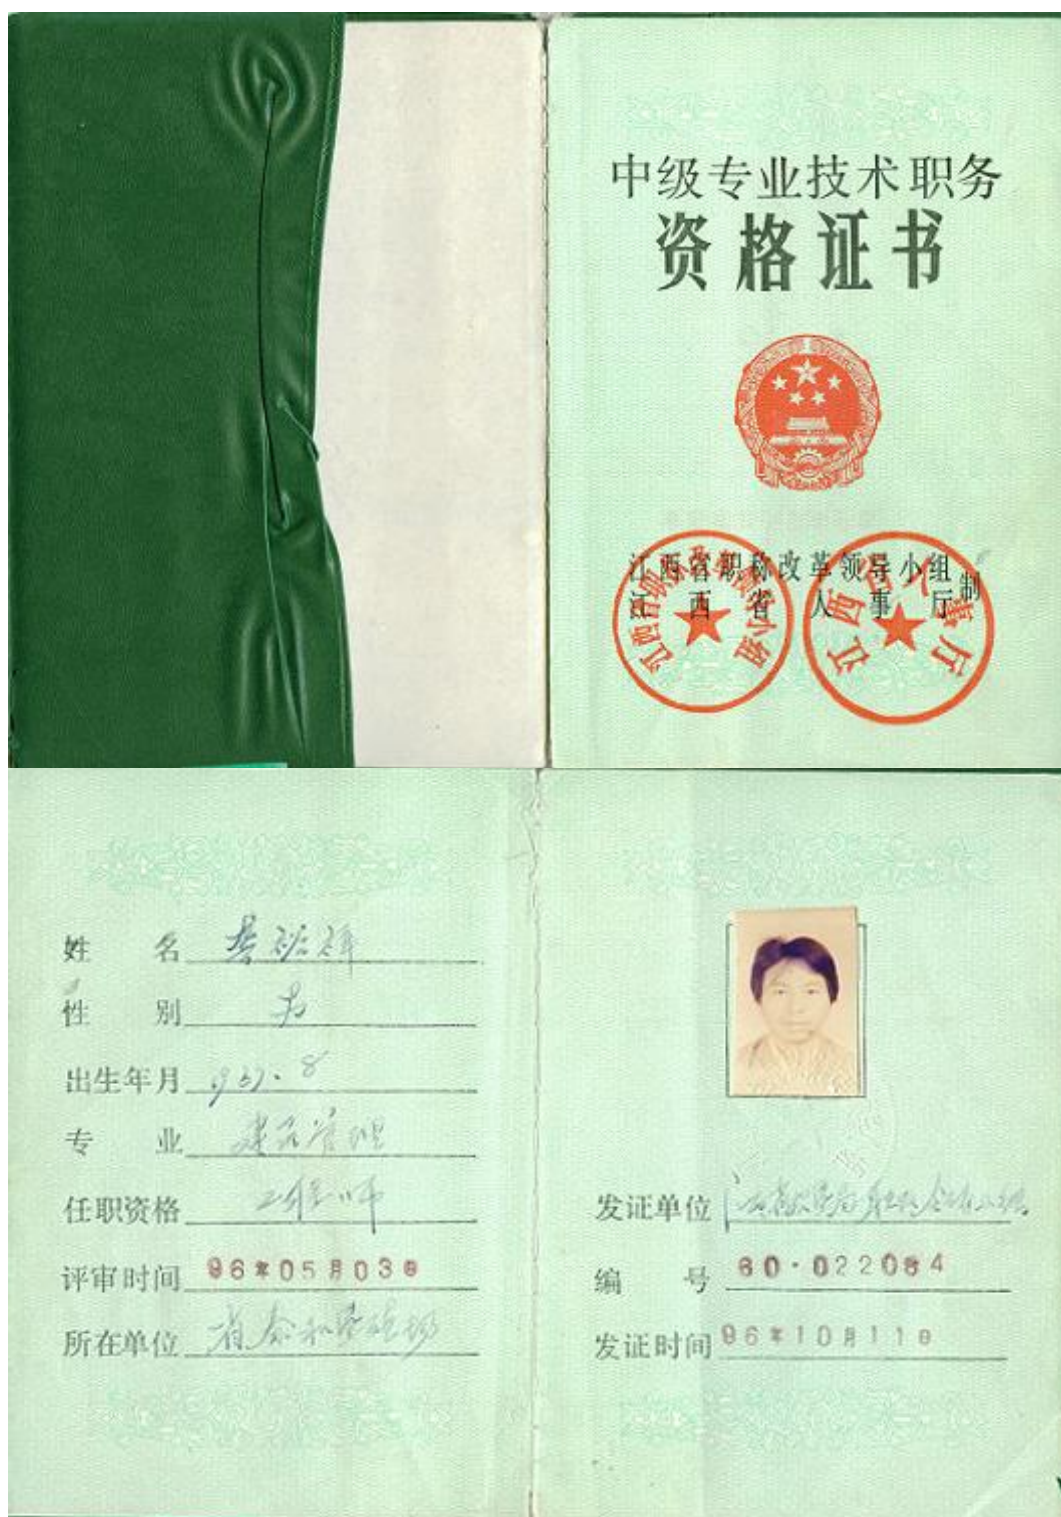 中级专业技术职务
资格证书
江西省职称改革领导小组
江西省人事厅
制
江西省职称改革领导小组
江西省人事厅
姓名
性别
出生年月 1957.8
专业
任职资格 工程师
评审时间 96年05月03日
所在单位
发证单位
编号 60·022084
发证时间 96年10月11日